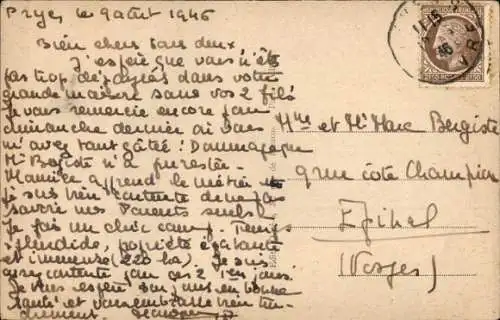 Prye, le 9 août 1946
Bien chers tous deux
J'espère que vous n'êtes
pas trop dépaysés dans votre
grande maison sans vos 2 fils
Je vous remercie encore pour
dimanche dernier où vous
m'avez tant gâtée! Dommage que
Mr n'a pu rester.
Maurice apprend le métier et
je suis bien contente de ne pas
savoir mes Parents seuls.
Je fais un chic camp. Temps
splendide, propriété épatante
et immense (220 ha). Je suis
contente par ces 2 1ers jours.
Je vous espère tous en bonne
santé et vous embrasse bien
drement.
Mme et Mr Marc
9 rue côte Champion
Epinal
(Vosges)